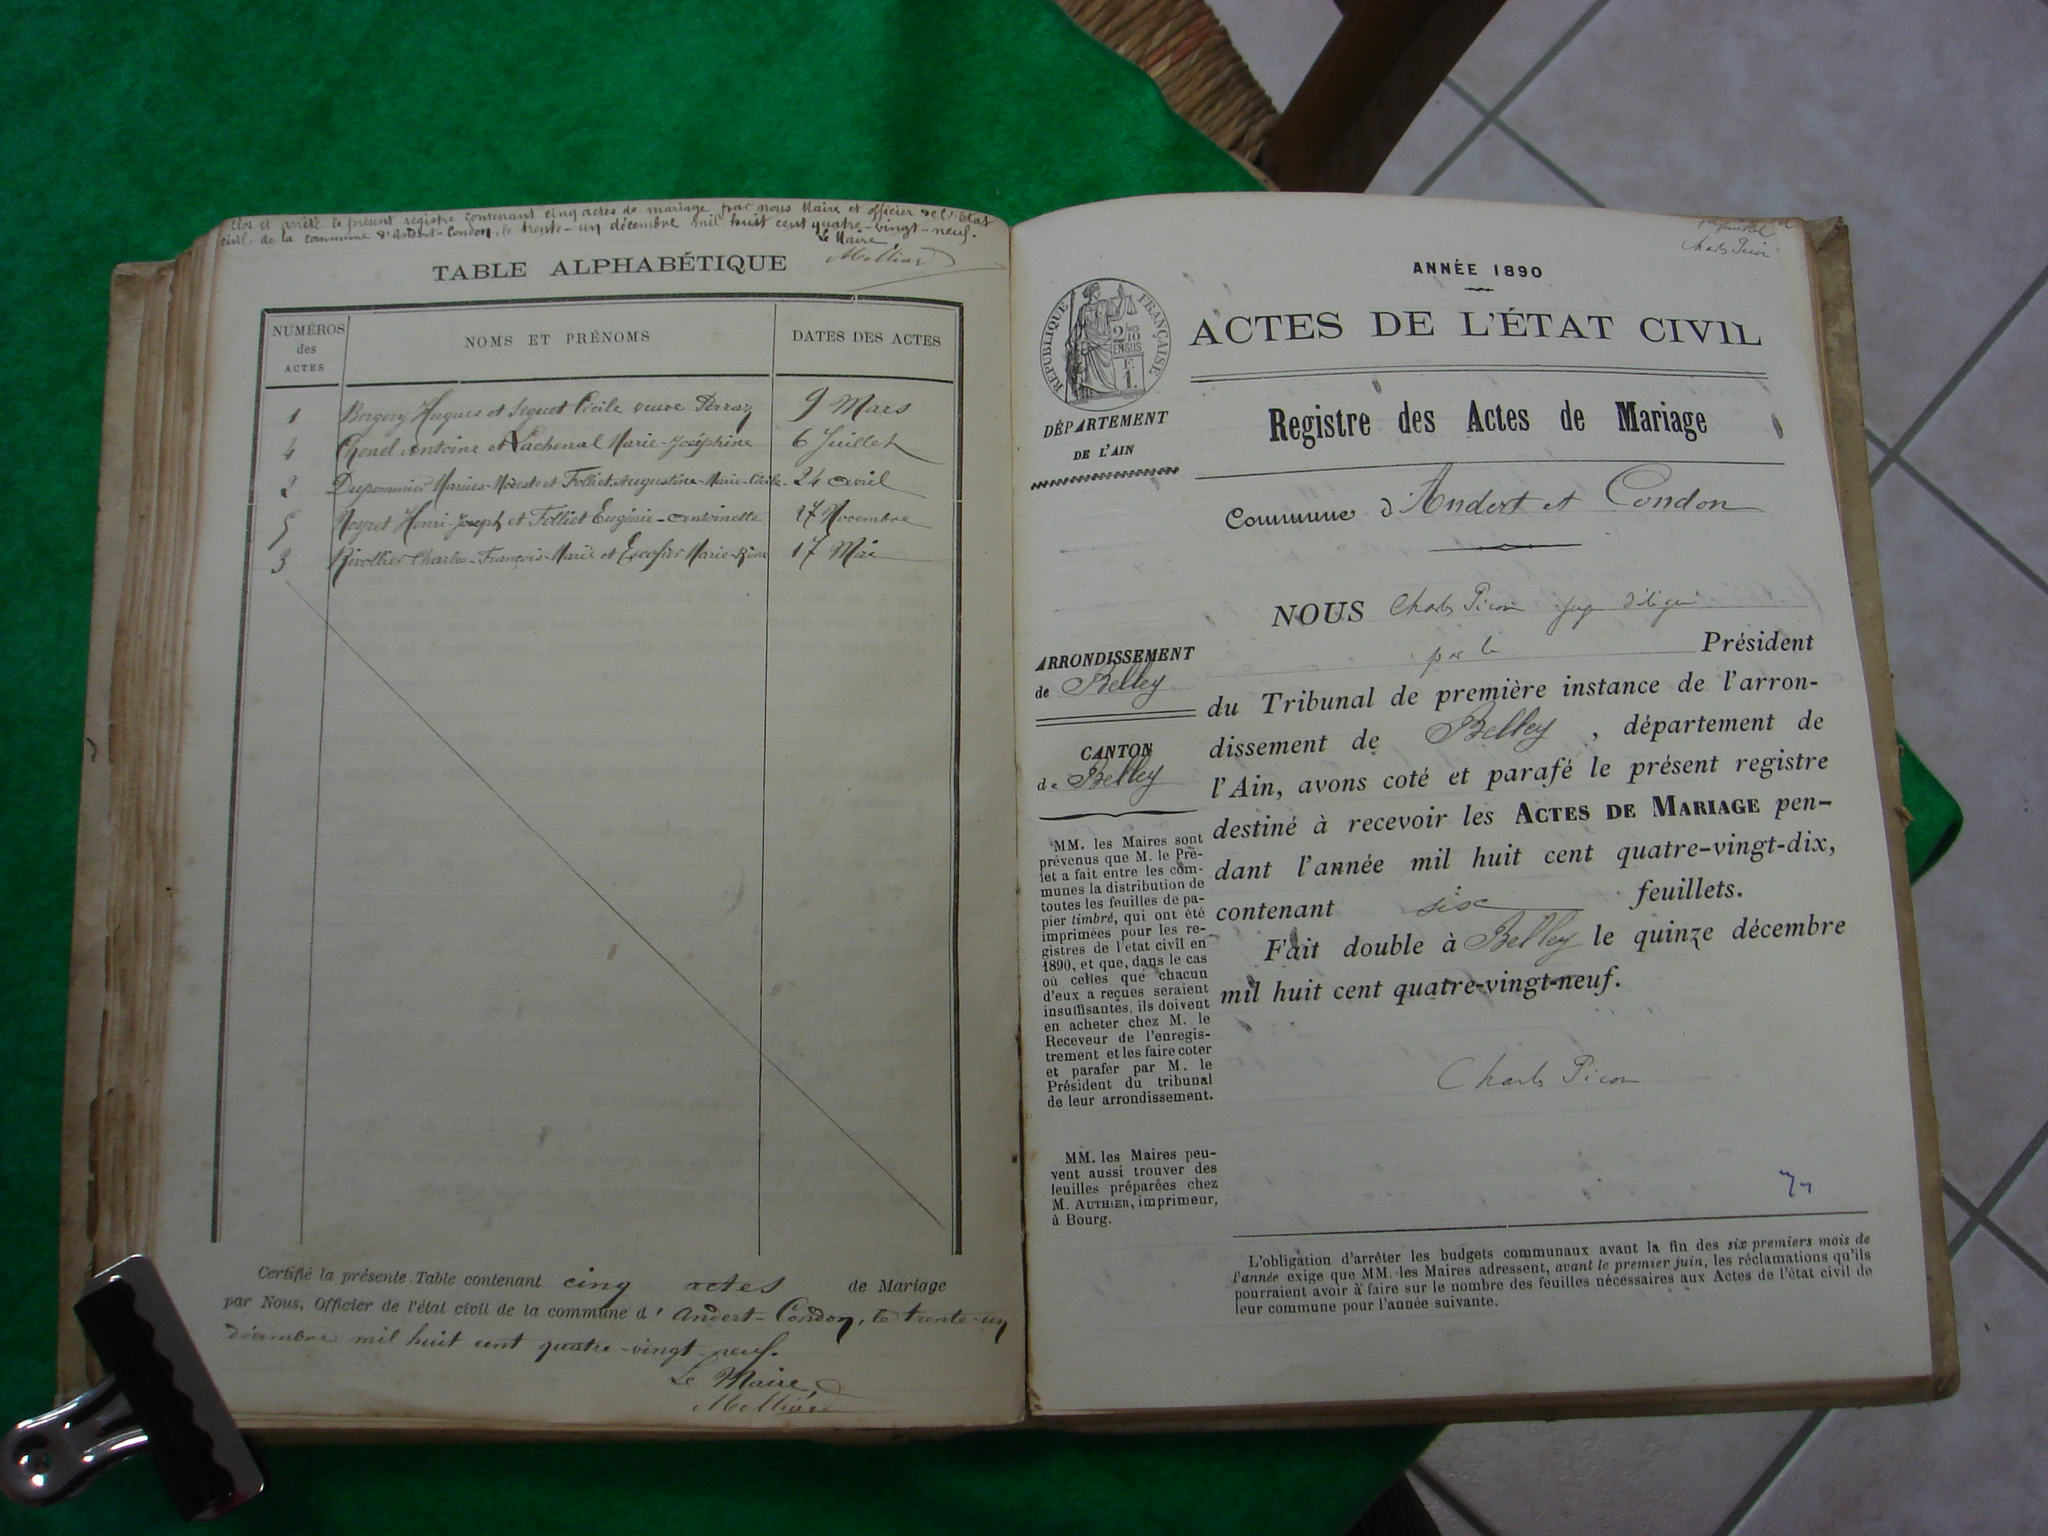 Clos et arrêté le présent registre contenant cinq actes de mariage par nous Maire et officier de l'Etat
civil de la commune d'Andert-Condon, le trente-un décembre mil huit cent quatre-vingt-neuf.
Le Maire,
TABLE ALPHABÉTIQUE
NUMÉROS des ACTES
NOMS ET PRÉNOMS
DATES DES ACTES
1 Bergery Hugues et Seguet Cécile veuve Perraz 9 Mars
4 Chenel Antoine et Lachenal Marie-Joséphine 6 Juillet
2 Dupommier Marius-Modeste et Folliet Augustine-Marie-Cécile 24 avril
5 Noyret Henri-Joseph et Folliet Eugénie-Antoinette 17 Novembre
3 Rivollier Charles-François-Marie et Escofier Marie- 17 Mai
Certifié la présente Table contenant cinq actes de Mariage
par Nous, Officier de l'état civil de la commune d' Andert-Condon, le trente-un
décembre mil huit cent quatre-vingt-neuf.
Le Maire,
Charles Picon
ANNÉE 1890
RÉPUBLIQUE FRANÇAISE
ACTES DE L'ÉTAT CIVIL
DÉPARTEMENT
DE L'AIN
Registre des Actes de Mariage
Commune d'Andert et Condon
ARRONDISSEMENT
de Belley
CANTON
de Belley
MM. les Maires sont
prévenus que M. le Pré-
fet a fait entre les com-
munes la distribution de
toutes les feuilles de pa-
pier timbré, qui ont été
imprimées pour les re-
gistres de l'etat civil en
1890, et que, dans le cas
où celles que chacun
d'eux a reçues seraient
insuffisantes, ils doivent
en acheter chez M. le
Receveur de l'enregis-
trement et les faire coter
et parafer par M. le
Président du tribunal
de leur arrondissement.
MM. les Maires peu-
vent aussi trouver des
feuilles préparées chez
M. AUTHIER, imprimeur,
à Bourg.
NOUS Charles Picon juge délégué
par le Président
du Tribunal de première instance de l'arron-
dissement de Belley, département de
l'Ain, avons coté et parafé le présent registre
destiné à recevoir les ACTES DE MARIAGE pen-
dant l'année mil huit cent quatre-vingt-dix,
contenant six feuillets.
Fait double à Belley le quinze décembre
mil huit cent quatre-vingt-neuf.
Charles Picon
L'obligation d'arrêter les budgets communaux avant la fin des six premiers mois de
l'année exige que MM. les Maires adressent, avant le premier juin, les réclamations qu'ils
pourraient avoir à faire sur le nombre des feuilles nécessaires aux Actes de l'état civil de
leur commune pour l'année suivante.